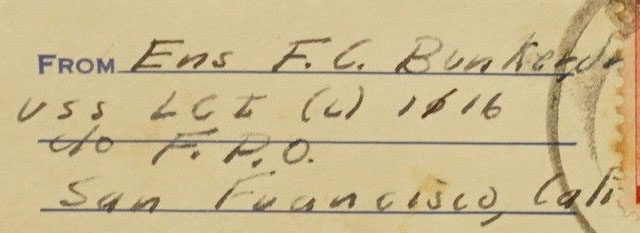 FROM Ens F.C. Bunker Jr
USS LCI (L) 1116
c/o F.P.O.
San Francisco, Cali